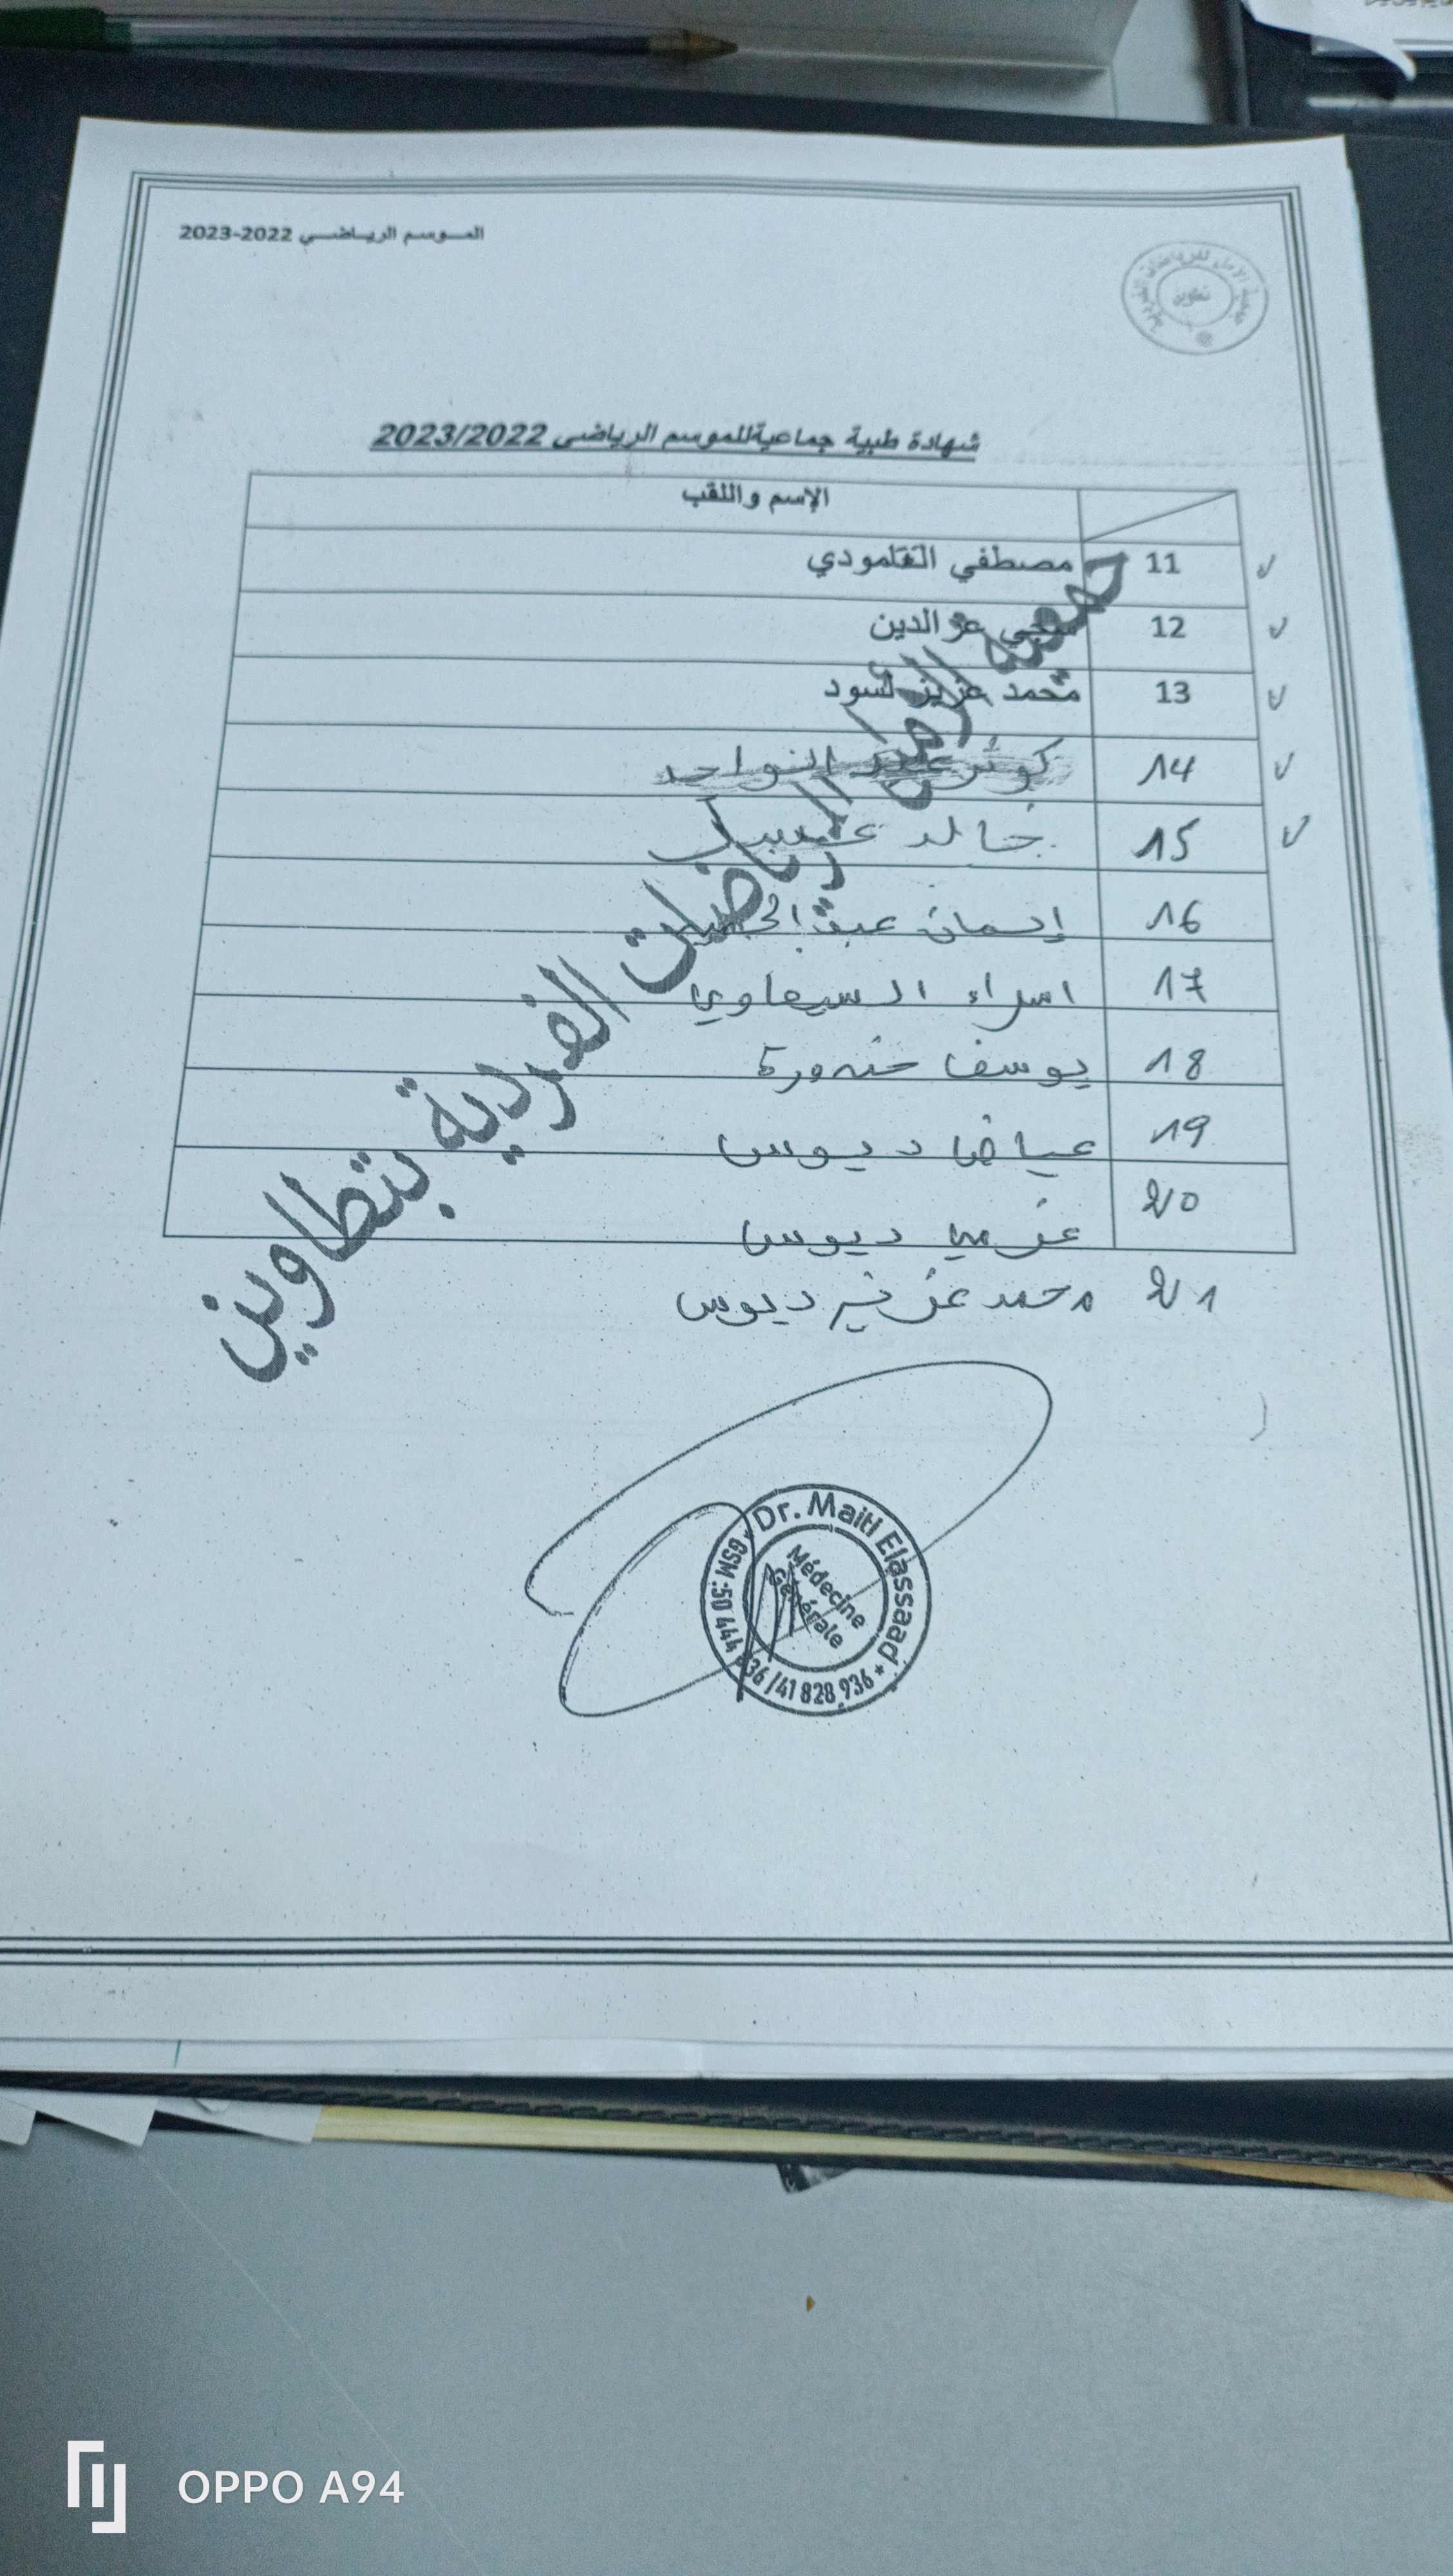 الموسم الرياضي 2022-2023
تطاوين
شهادة طبية جماعية للموسم الرياضي 2023/2022
الإسم واللقب
11 مصطفي القلمودي
12 عز الدين
13 محمد عزيز لسود
14 كوثر
15 خالد
16 إيمان
17 اسراء السيعاوي
18 يوسف خنورة
19 عياض ديوس
20 عزمي ديوس
21 محمد عزيز ديوس
جمعية الأمل للرياضات الفردية بتطاوين
Dr. Maiti Elassaad
Médecine
Générale
GSM: 50 444 936 / 41 828 936
OPPO A94